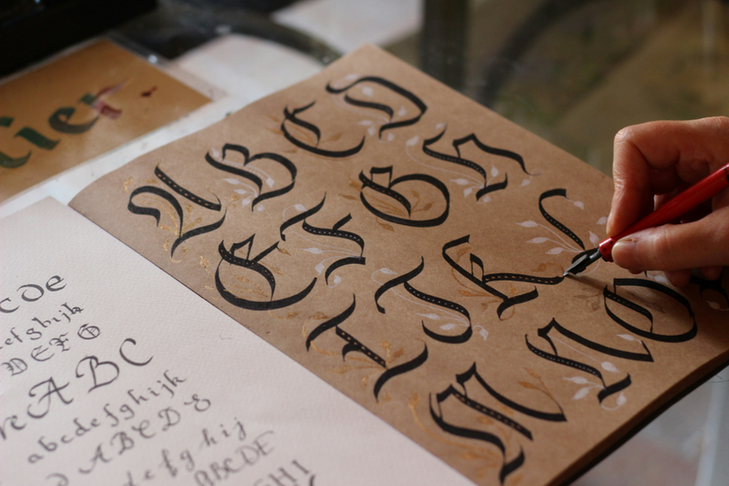 ier
A B C D
E F G H
I J K L
M N O
cde
efghijk
DEFG
ABC
abcdefghijk
ABCD
efghij
ABCDE
GHI